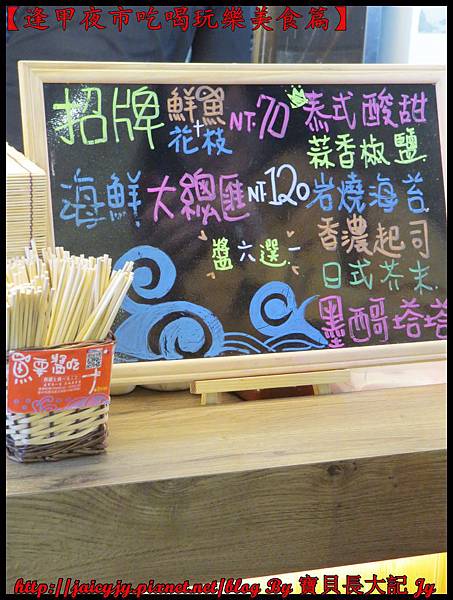 【逢甲夜市吃喝玩樂美食篇】
招牌 鮮魚+花枝 NT.70
海鮮大總匯 NT.120
醬六選一
泰式酸甜
蒜香椒鹽
岩燒海苔
香濃起司
日式芥末
墨西哥塔塔
http://jaicyjy.pixnet.net/blog By 寶貝長大記 Jy